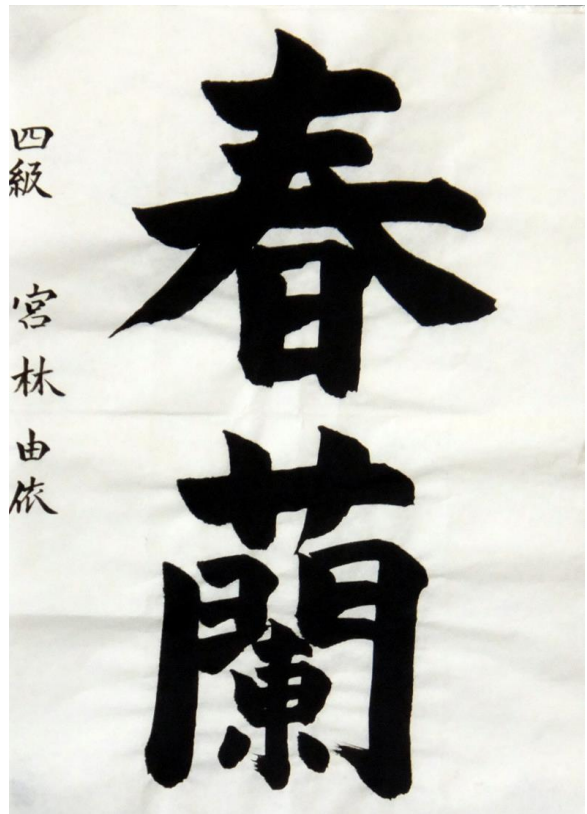 春蘭
四級 宮林由依